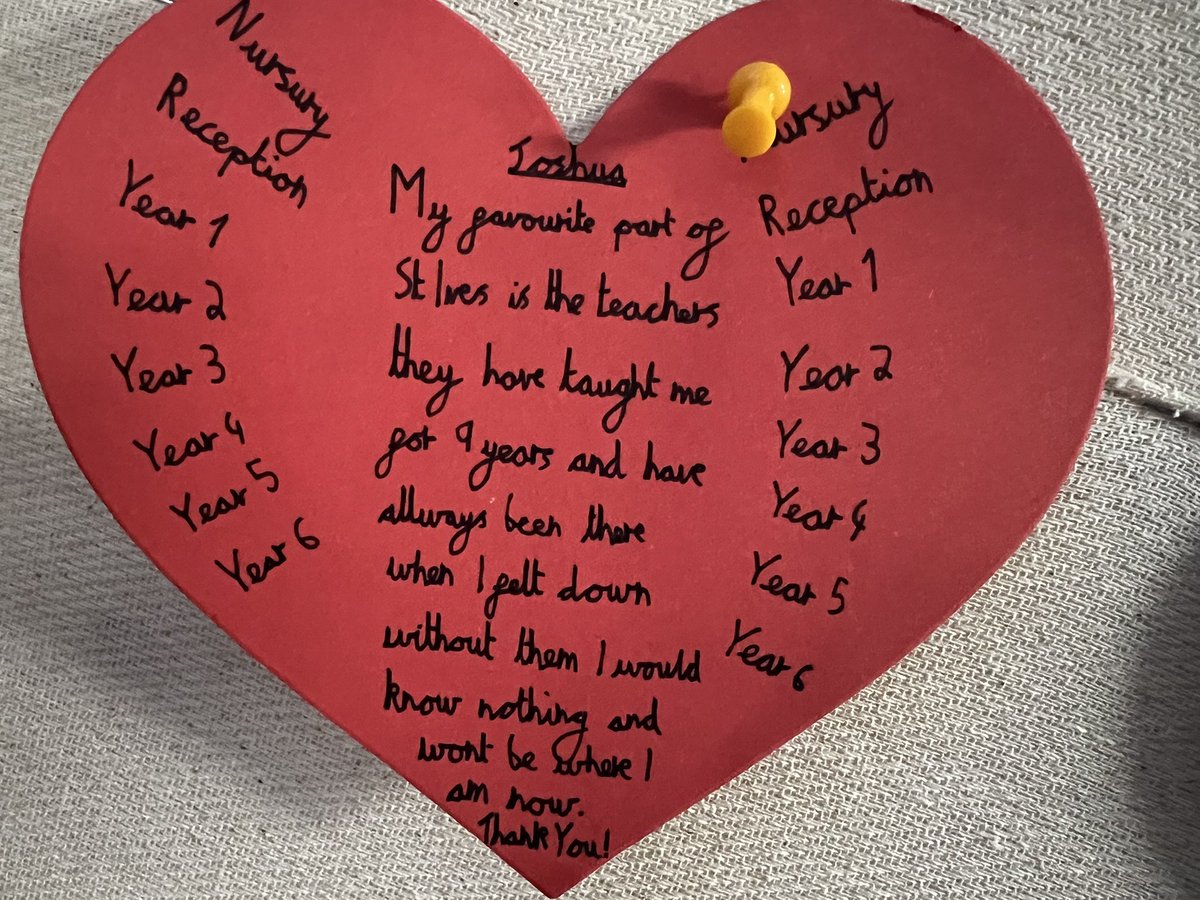 Nursury
Reception
Year 1
Year 2
Year 3
Year 4
Year 5
Year 6
Joshua
My favourite part of
St Ives is the teachers
they have taught me
for 9 years and have
allways been there
when I felt down
without them I would
know nothing and
wont be where I
am now.
Thank You!
ursury
Reception
Year 1
Year 2
Year 3
Year 4
Year 5
Year 6